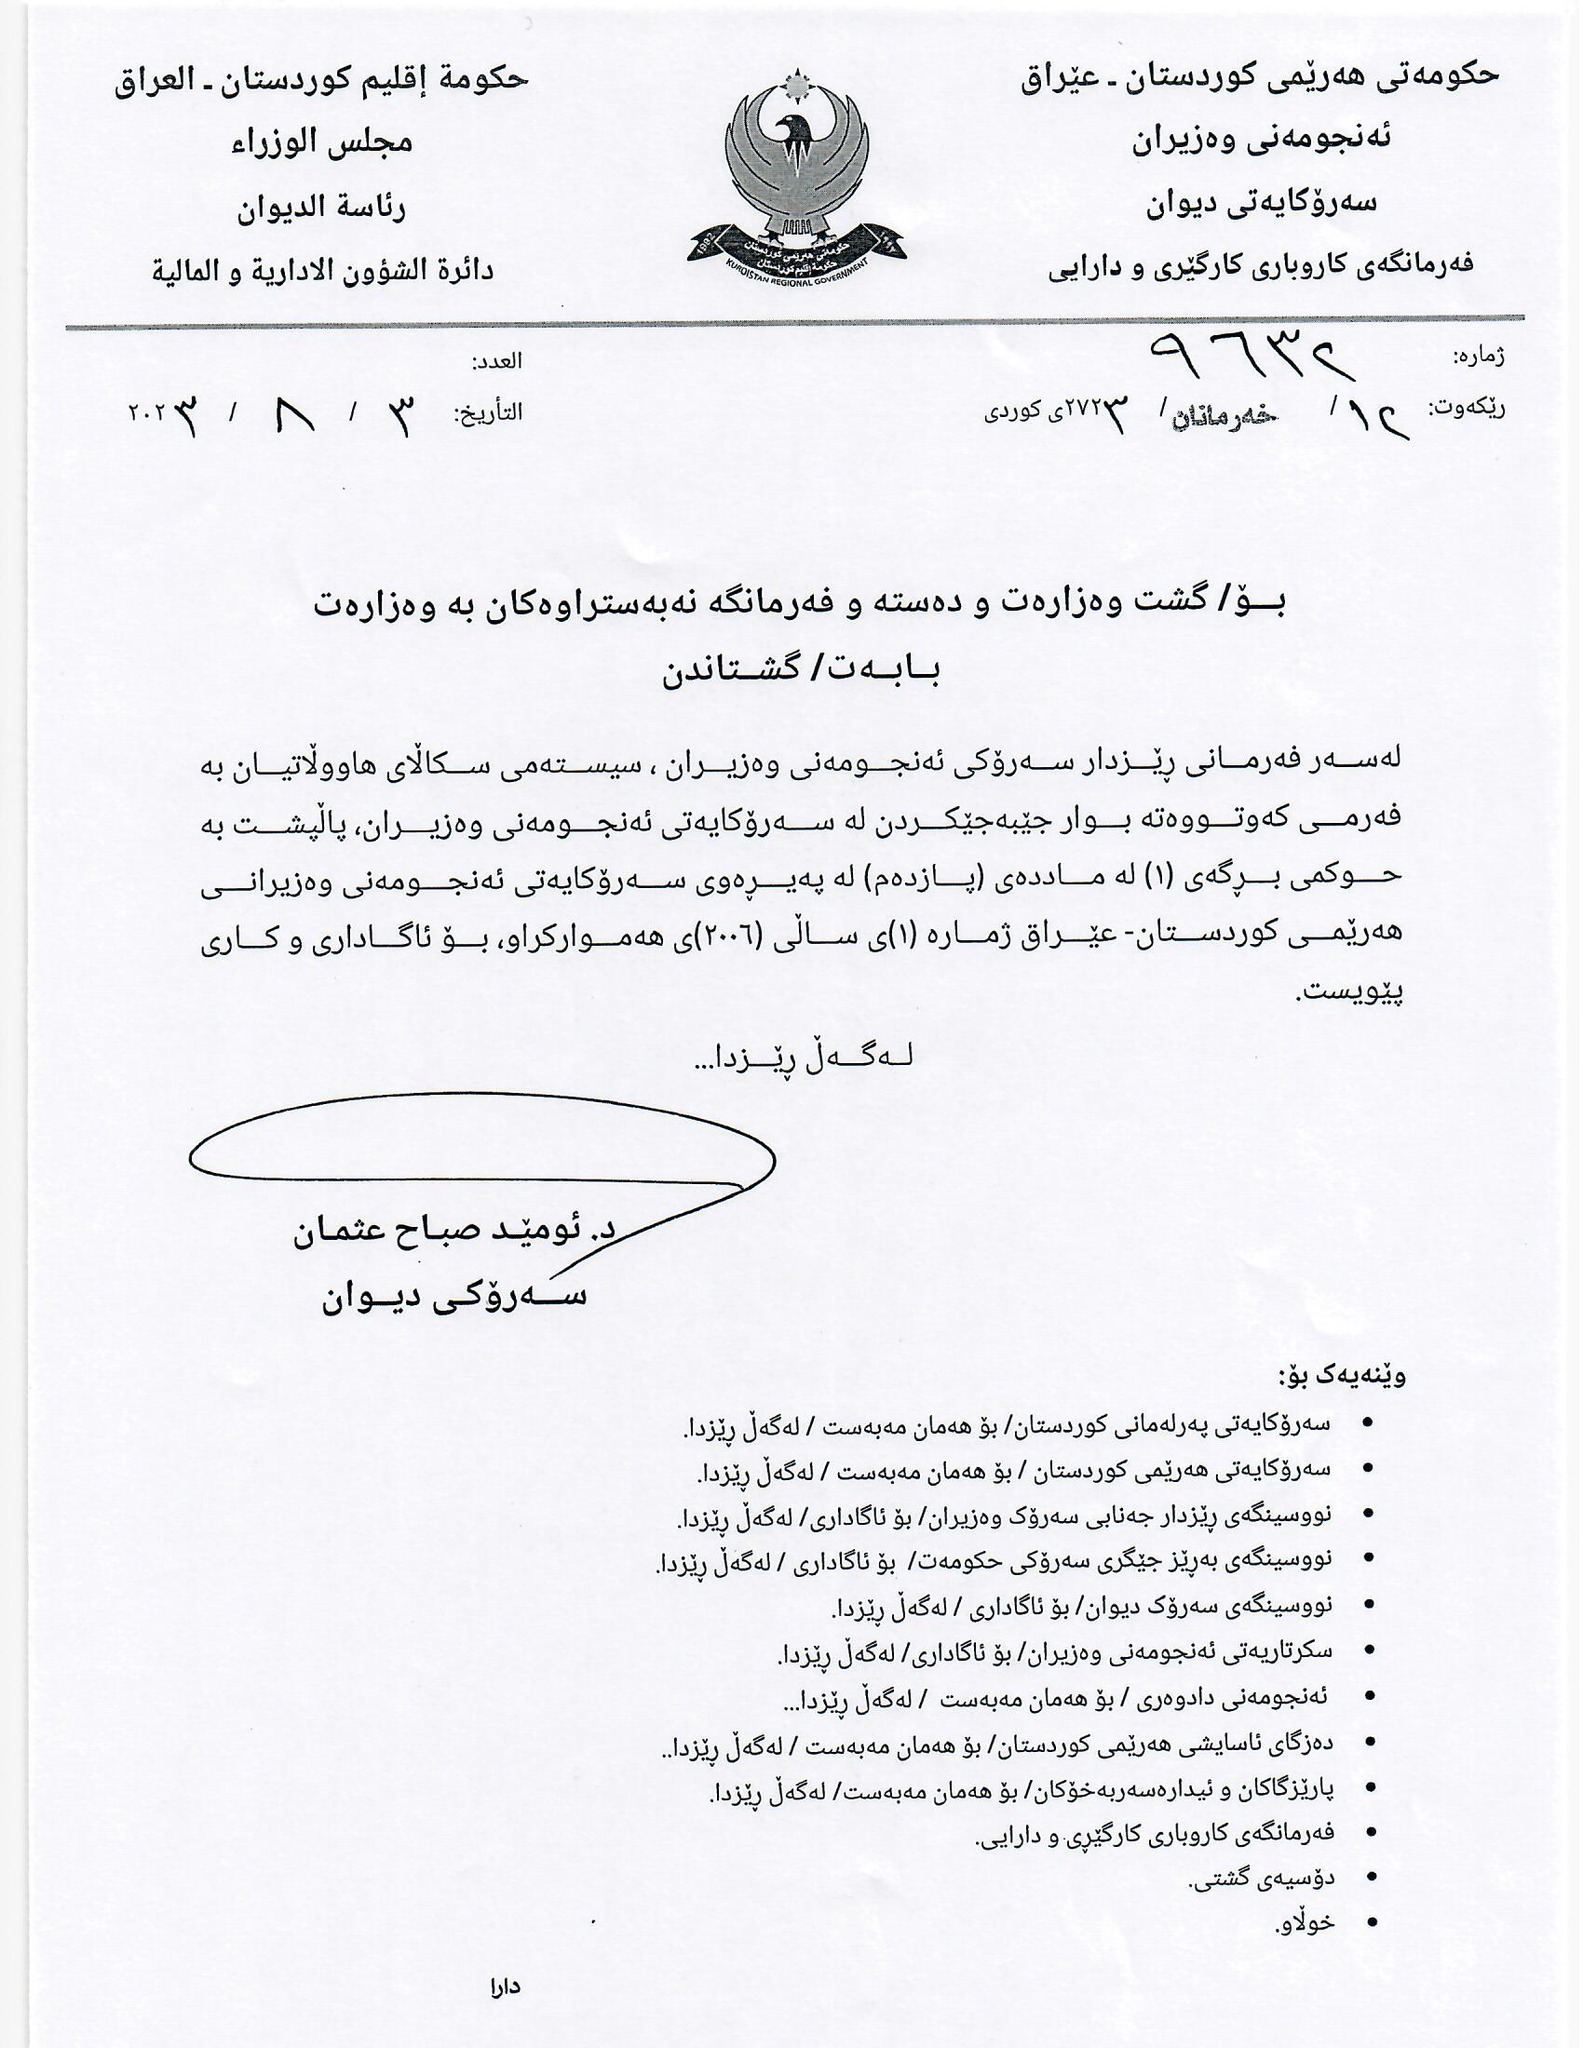 حکومەتی هەرێمی کوردستان ـ عێراق
ئەنجومەنی وەزیران
سەرۆکایەتی دیوان
فەرمانگەی کاروباری کارگێری و دارایی
حكومة إقليم كوردستان ـ العراق
مجلس الوزراء
رئاسة الديوان
دائرة الشؤون الادارية و المالية
١٩٩٢ 1992
حکومەتی هەرێمی کوردستان
حكومة إقليم كوردستان
KURDISTAN REGIONAL GOVERNMENT
ژمارە: ٩٦٣٢
ڕێکەوت: ١٢ / خەرمانان / ٢٧٢٣ی کوردی
العدد:
التأريخ: ٣ / ٨ / ٢٠٢٣
بـــۆ/ گشت وەزارەت و دەستە و فەرمانگە نەبەستراوەکان بە وەزارەت
بـابـەت/ گشـتاندن
لەســەر فەرمـانی ڕێـزدار سەرۆکی ئەنجـومەنی وەزیـران ، سیسـتەمی سـکاڵای هاووڵاتیـان بە
فەرمـی کەوتـووەتە بـوار جێبەجێکـردن لە سـەرۆکایەتی ئەنجـومەنی وەزیـران، پاڵپشـت بە
حـوکمی بـڕگەی (١) لە مـاددەی (پـازدەم) لە پەیـڕەوی سـەرۆکایەتی ئەنجـومەنی وەزیرانـی
هەرێمـی کوردسـتان- عێـراق ژمـارە (١)ی سـاڵی (٢٠٠٦)ی هەمـوارکراو، بـۆ ئاگـاداری و کـاری
پێویست.
لـەگـەڵ ڕێـــزدا...
د. ئومێـد صبـاح عثمـان
ســەرۆکـی دیـوان
وێنەیەک بۆ:
• سەرۆکایەتی پەرلەمانی کوردستان/ بۆ هەمان مەبەست / لەگەڵ ڕێزدا.
• سەرۆکایەتی هەرێمی کوردستان / بۆ هەمان مەبەست / لەگەڵ ڕێزدا.
• نووسینگەی ڕێزدار جەنابی سەرۆک وەزیران/ بۆ ئاگاداری/ لەگەڵ ڕێزدا.
• نووسینگەی بەڕێز جێگری سەرۆکی حکومەت/ بۆ ئاگاداری / لەگەڵ ڕێزدا.
• نووسینگەی سەرۆک دیوان/ بۆ ئاگاداری / لەگەڵ ڕێزدا.
• سکرتاریەتی ئەنجومەنی وەزیران/ بۆ ئاگاداری/ لەگەڵ ڕێزدا.
• ئەنجومەنی دادوەری / بۆ هەمان مەبەست / لەگەڵ ڕێزدا...
• دەزگای ئاسایشی هەرێمی کوردستان/ بۆ هەمان مەبەست / لەگەڵ ڕێزدا..
• پارێزگاکان و ئیدارەسەربەخۆکان/ بۆ هەمان مەبەست/ لەگەڵ ڕێزدا.
• فەرمانگەی کاروباری کارگێڕی و دارایی.
• دۆسیەی گشتی.
• خولاو.
دارا